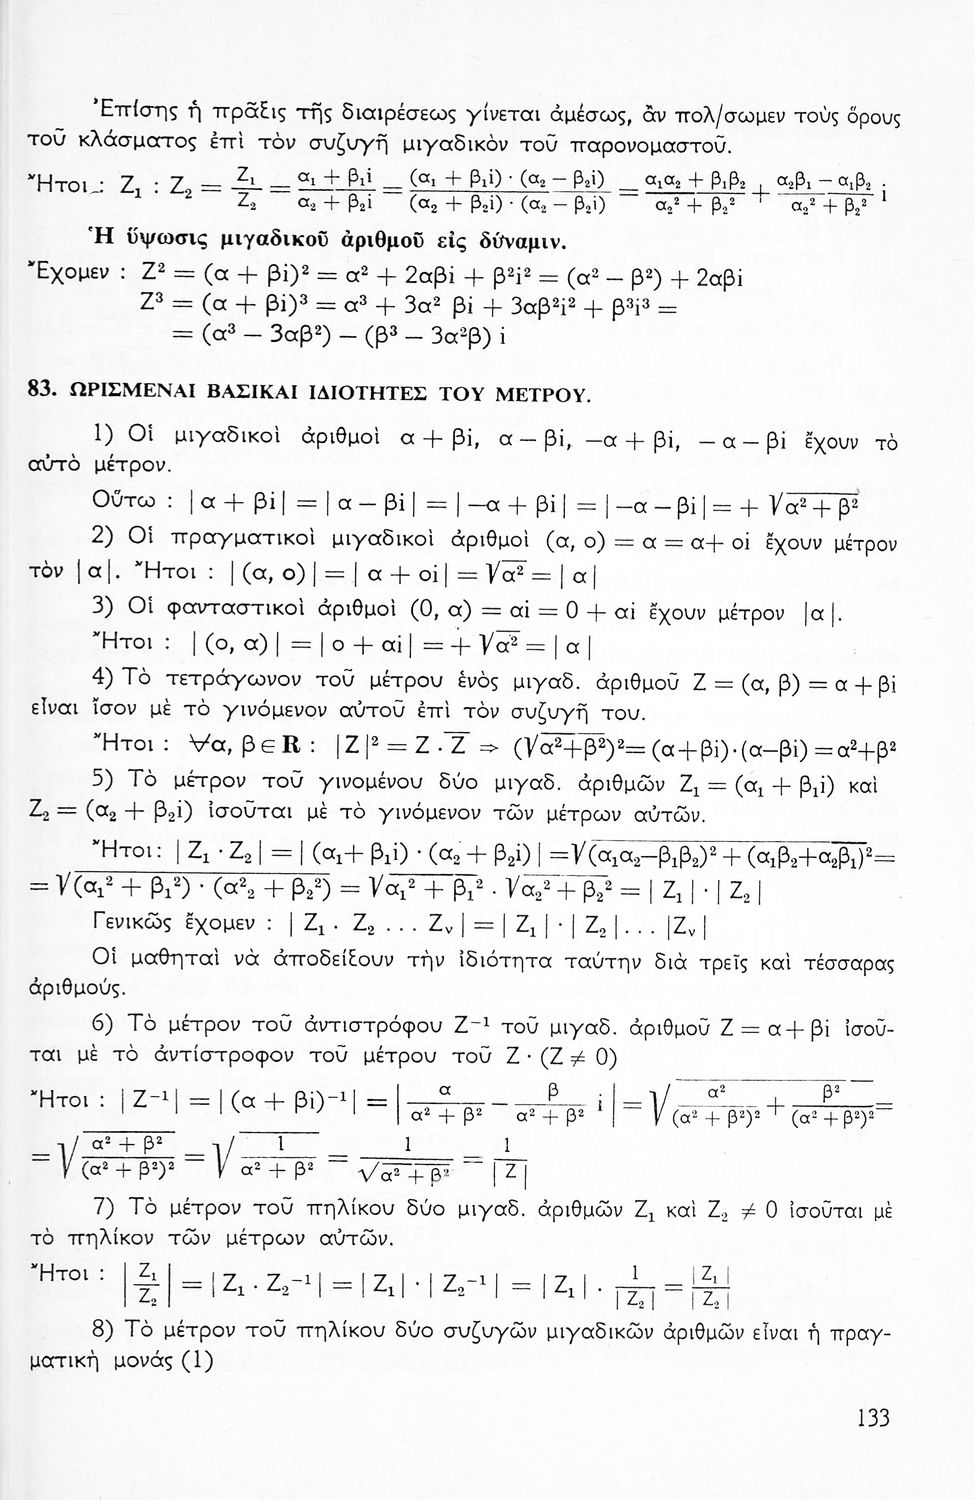 Ἐπίσης ἡ πρᾶξις τῆς διαιρέσεως γίνεται ἀμέσως, ἂν πολ/σωμεν τοὺς ὅρους
τοῦ κλάσματος ἐπὶ τὸν συζυγῆ μιγαδικὸν τοῦ παρονομαστοῦ.
Ἤτοι : Z₁ : Z₂ = Z₁/Z₂ = (α₁ + β₁i)/(α₂ + β₂i) = ((α₁ + β₁i) · (α₂ – β₂i))/((α₂ + β₂i) · (α₂ – β₂i)) = (α₁α₂ + β₁β₂)/(α₂² + β₂²) + (α₂β₁ – α₁β₂)/(α₂² + β₂²) i
Ἡ ὕψωσις μιγαδικοῦ ἀριθμοῦ εἰς δύναμιν.
Ἔχομεν : Z² = (α + βi)² = α² + 2αβi + β²i² = (α² – β²) + 2αβi
Z³ = (α + βi)³ = α³ + 3α² βi + 3αβ²i² + β³i³ =
= (α³ – 3αβ²) – (β³ – 3α²β) i
83. ΩΡΙΣΜΕΝΑΙ ΒΑΣΙΚΑΙ ΙΔΙΟΤΗΤΕΣ ΤΟΥ ΜΕΤΡΟΥ.
1) Οἱ μιγαδικοὶ ἀριθμοὶ α + βi, α – βi, –α + βi, – α – βi ἔχουν τὸ
αὐτὸ μέτρον.
Οὕτω : | α + βi | = | α – βi | = | –α + βi | = | –α – βi | = + √(α² + β²)
2) Οἱ πραγματικοὶ μιγαδικοὶ ἀριθμοὶ (α, ο) = α = α+ οi ἔχουν μέτρον
τὸν | α |. Ἤτοι : | (α, ο) | = | α + οi | = √α² = | α |
3) Οἱ φανταστικοὶ ἀριθμοὶ (0, α) = αi = 0 + αi ἔχουν μέτρον |α |.
Ἤτοι : | (ο, α) | = | ο + αi | = + √α² = | α |
4) Τὸ τετράγωνον τοῦ μέτρου ἑνὸς μιγαδ. ἀριθμοῦ Z = (α, β) = α + βi
εἶναι ἴσον μὲ τὸ γινόμενον αὐτοῦ ἐπὶ τὸν συζυγῆ του.
Ἤτοι : ∀α, β ∈ R : |Z|² = Z · Z̅ ⇒ (√(α²+β²))² = (α+βi)·(α–βi) = α²+β²
5) Τὸ μέτρον τοῦ γινομένου δύο μιγαδ. ἀριθμῶν Z₁ = (α₁ + β₁i) καὶ
Z₂ = (α₂ + β₂i) ἰσοῦται μὲ τὸ γινόμενον τῶν μέτρων αὐτῶν.
Ἤτοι : | Z₁ · Z₂ | = | (α₁+ β₁i) · (α₂ + β₂i) | = √((α₁α₂–β₁β₂)² + (α₁β₂+α₂β₁)²) =
= √((α₁² + β₁²) · (α²₂ + β₂²)) = √(α₁² + β₁²) · √(α₂² + β₂²) = | Z₁ | · | Z₂ |
Γενικῶς ἔχομεν : | Z₁ · Z₂ ... Zᵥ | = | Z₁ | · | Z₂ | . . . |Zᵥ |
Οἱ μαθηταὶ νὰ ἀποδείξουν τὴν ἰδιότητα ταύτην διὰ τρεῖς καὶ τέσσαρας
ἀριθμούς.
6) Τὸ μέτρον τοῦ ἀντιστρόφου Z⁻¹ τοῦ μιγαδ. ἀριθμοῦ Z = α+ βi ἰσοῦ-
ται μὲ τὸ ἀντίστροφον τοῦ μέτρου τοῦ Z · (Z ≠ 0)
Ἤτοι : | Z⁻¹ | = | (α + βi)⁻¹ | = | α/(α² + β²) – β/(α² + β²) i | = √(α²/(α² + β²)² + β²/(α² + β²)²) =
= √((α² + β²)/(α² + β²)²) = √(1/(α² + β²)) = 1/√(α² + β²) = 1/| Z |
7) Τὸ μέτρον τοῦ πηλίκου δύο μιγαδ. ἀριθμῶν Z₁ καὶ Z₂ ≠ 0 ἰσοῦται μὲ
τὸ πηλίκον τῶν μέτρων αὐτῶν.
Ἤτοι : | Z₁/Z₂ | = | Z₁ · Z₂⁻¹ | = | Z₁ | · | Z₂⁻¹ | = | Z₁ | · 1/| Z₂ | = | Z₁ |/| Z₂ |
8) Τὸ μέτρον τοῦ πηλίκου δύο συζυγῶν μιγαδικῶν ἀριθμῶν εἶναι ἡ πραγ-
ματικὴ μονάς (1)
133